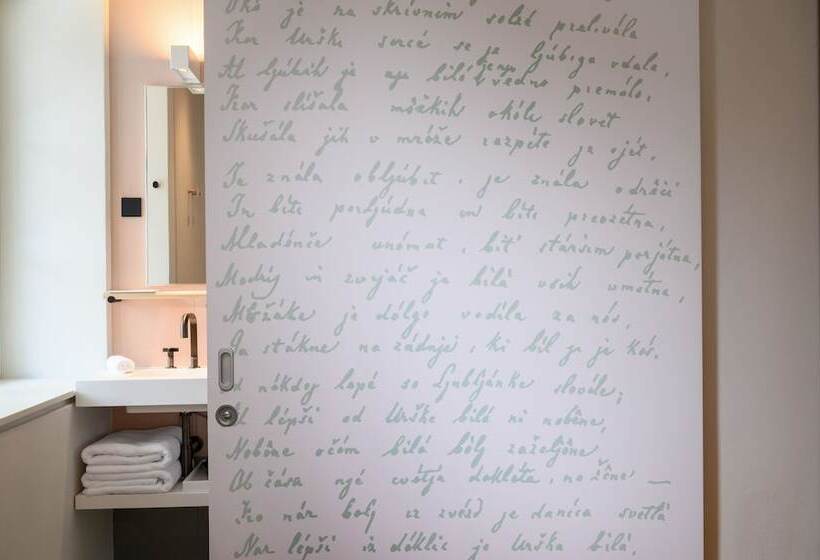 Oká je na skrivnim solzé prelivála
Ker Urški sercé se je ljúbiga vdala,
Al ljúbih je nje biló vedno premálo,
Kar slišala móških okóli slovét
Skušála jih v mréže razpéte je vjét.
Je znála obljúbit, je znála odréči
In biti perljúdna in biti prevzétna,
Mladénče vnémat, bit' stárim perjétna,
Modrij in zvijáč je bilá vsih umétna,
Možáke je dólgo vodíla za nós,
Ga stákne na zádnje, ki bíl ji je kós.
Od nékdej lepé so Ljubljánke slovéle,
Al lépši od Urške bilá ni nobêne,
Nobêne očém bilá bólj zaželjêne
Ob čása njé cvétja dekléta, ne žêne —
Ko nár bolj iz zvézd je danica svetlá
Nar lépši iz déklic je Urška bilá.